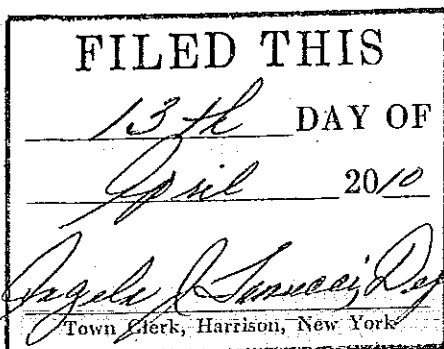 FILED THIS
13th DAY OF
April 2010
Angela J
Town Clerk, Harrison, New York